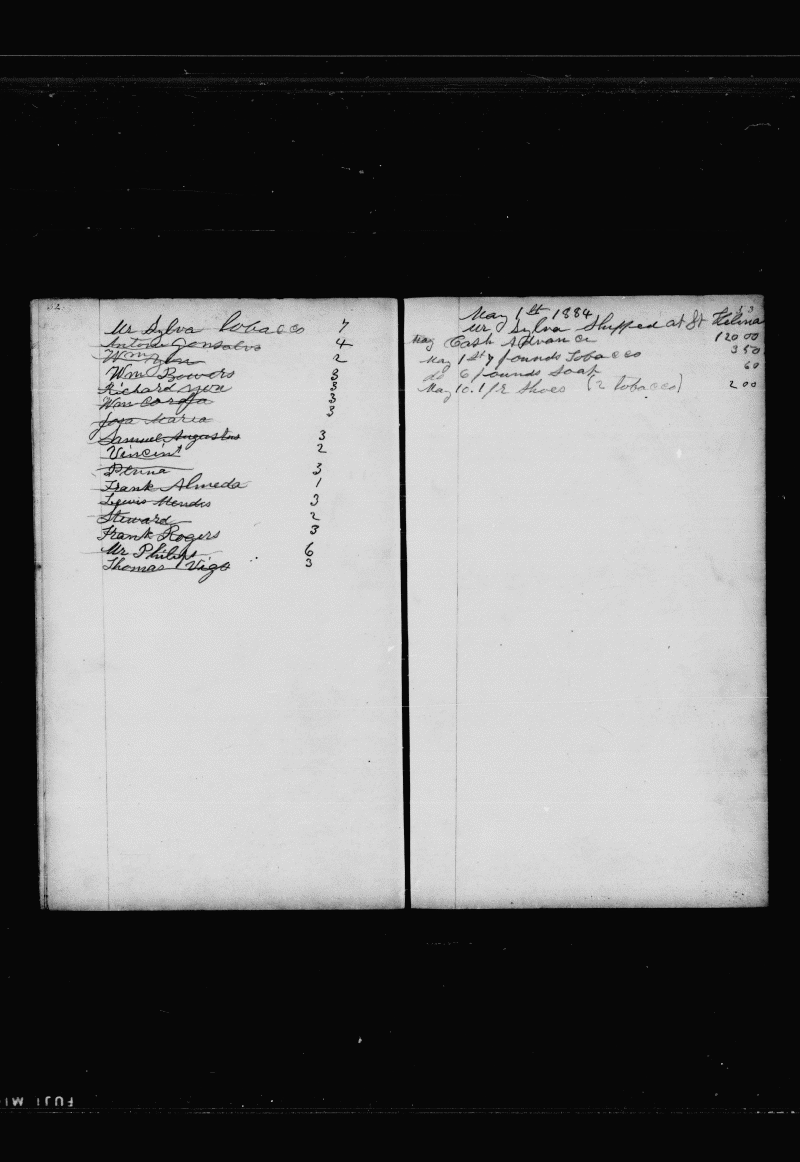 52
Mr Sylva Tobacco 7
Antone Gonsalvs 4
Wm 2
Wm Bowers 3
Richard 3
Wm 3
Joja Maria 3
Samuel Augustus 3
Vincint 2
3
Frank Almeda 1
Lewis Mendes 3
Steward 2
Frank Rogers 3
Mr Philips 6
Thomas Vigo 3
53
May 1st 1884
Mr Sylva Shipped at St Helina
May Cash Advance 120 00
May 1st 7 pounds Tobacco 3 50
do 6 pounds Soap 60
May 10. 1 pr Shoes (2 tobacco) 2 00
FUJI MI